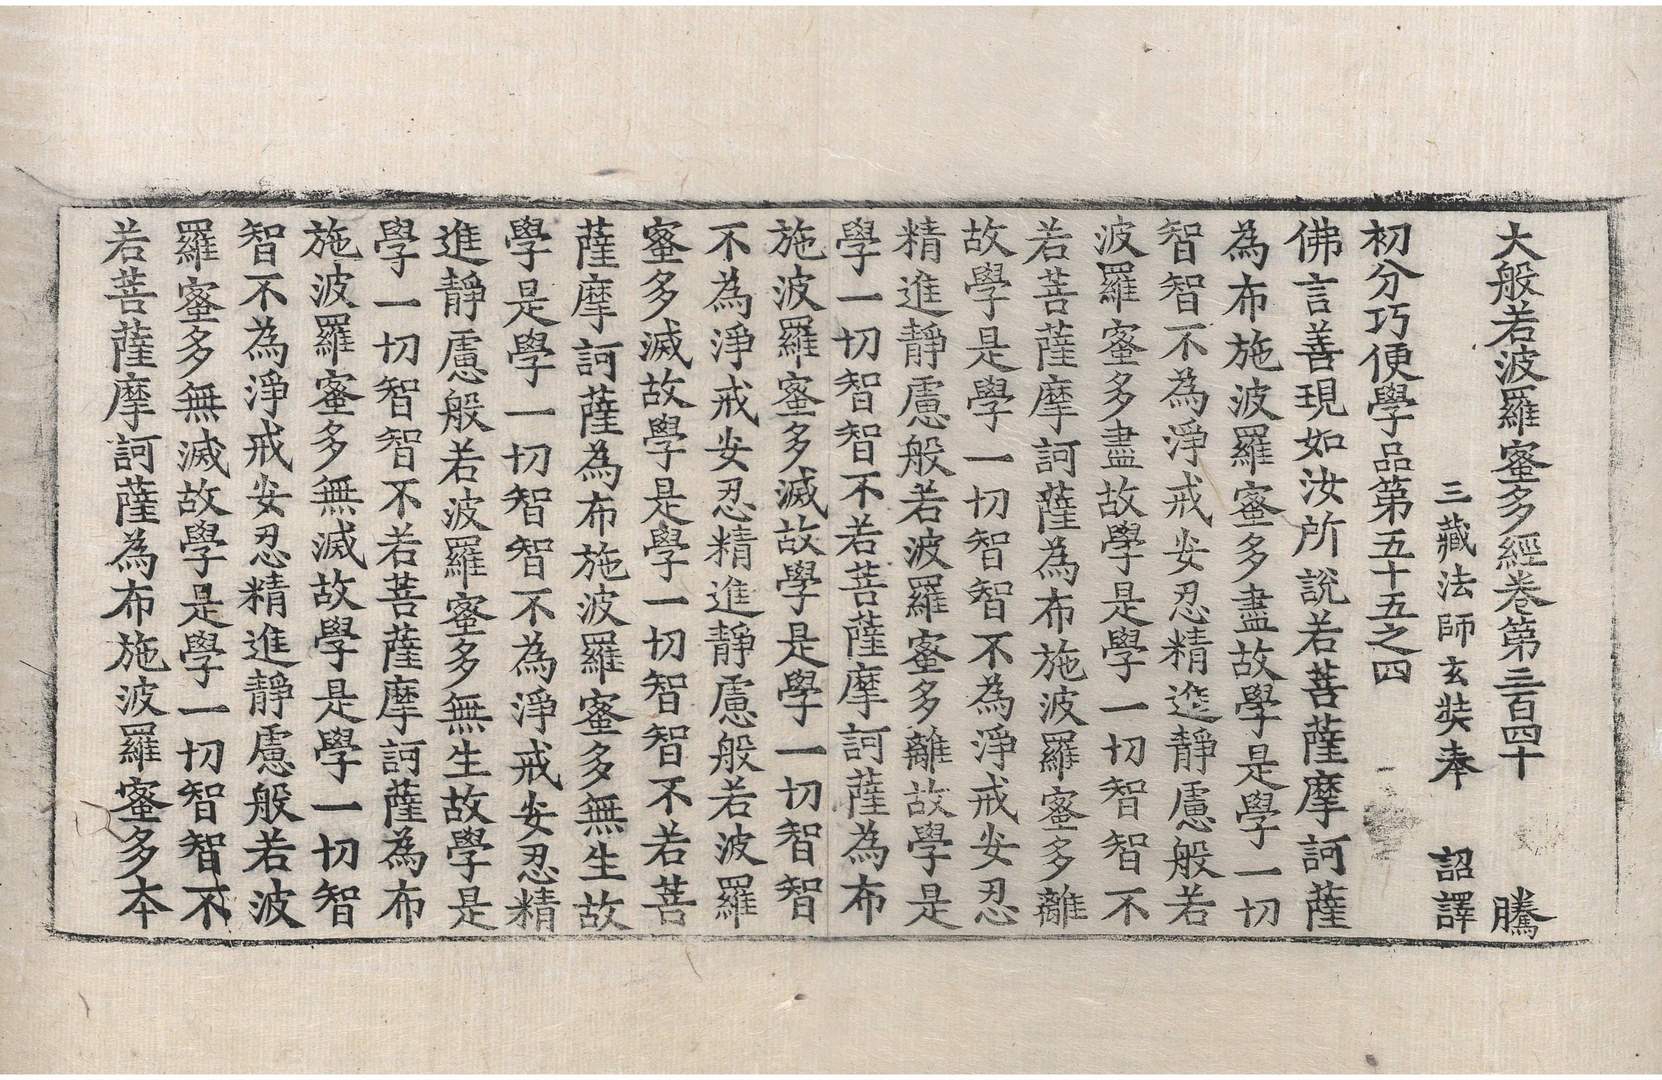 大般若波羅蜜多經卷第三百四十 騰
三藏法師玄奘奉 詔譯
初分巧便學品第五十五之四
佛言善現如汝所說若菩薩摩訶薩
為布施波羅蜜多盡故學是學一切
智智不為淨戒安忍精進靜慮般若
波羅蜜多盡故學是學一切智智不
若菩薩摩訶薩為布施波羅蜜多離
故學是學一切智智不為淨戒安忍
精進靜慮般若波羅蜜多離故學是
學一切智智不若菩薩摩訶薩為布
施波羅蜜多滅故學是學一切智智
不為淨戒安忍精進靜慮般若波羅
蜜多滅故學是學一切智智不若菩
薩摩訶薩為布施波羅蜜多無生故
學是學一切智智不為淨戒安忍精
進靜慮般若波羅蜜多無生故學是
學一切智智不若菩薩摩訶薩為布
施波羅蜜多無滅故學是學一切智
智不為淨戒安忍精進靜慮般若波
羅蜜多無滅故學是學一切智智不
若菩薩摩訶薩為布施波羅蜜多本